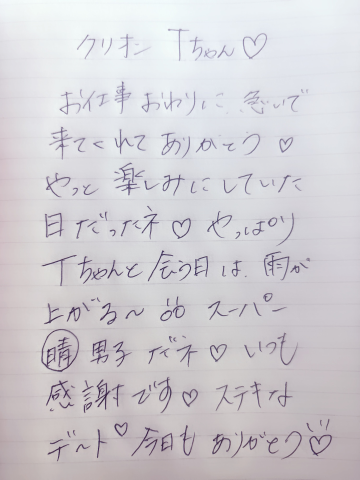 クリオン Tちゃん♡
お仕事おわりに急いで
来てくれてありがとう♡
やっと楽しみにしていた
日だったネ♡ やっぱり
Tちゃんと会う日は、雨が
上がる〜 スーパー
晴男子だネ♡ いつも
感謝です♡ ステキな
デート♡今日もありがとう♡